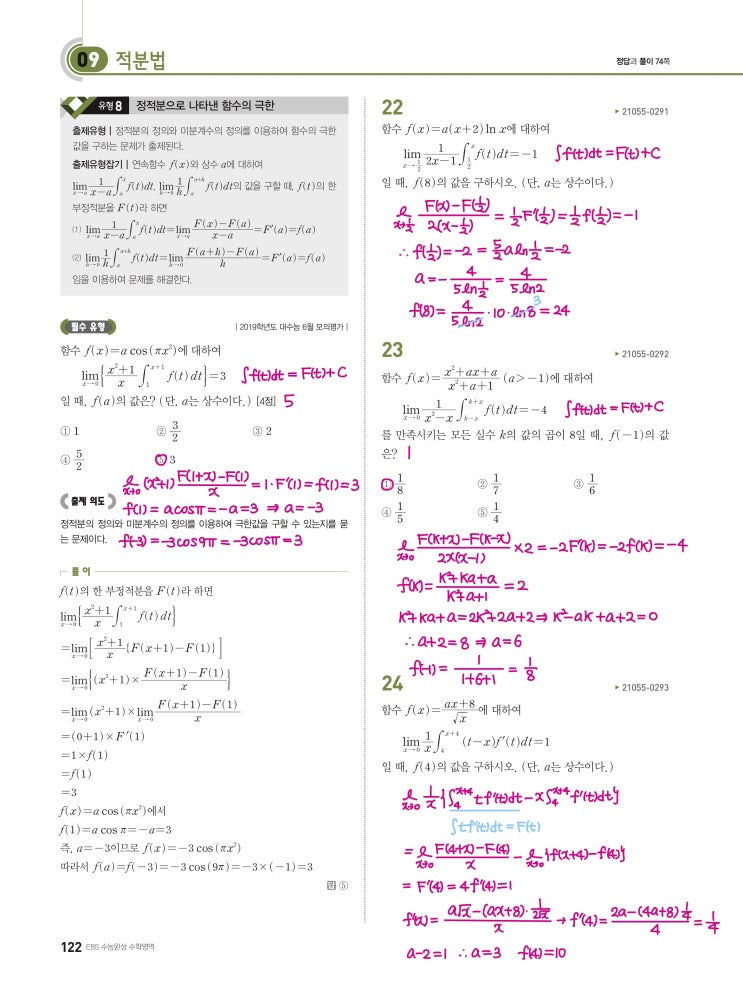 09 적분법
정답과 풀이 74쪽
유형 8 정적분으로 나타낸 함수의 극한
출제유형 | 정적분의 정의와 미분계수의 정의를 이용하여 함수의 극한
값을 구하는 문제가 출제된다.
출제유형잡기 | 연속함수 f(x)와 상수 a에 대하여
lim_{x→a} 1/(x-a) ∫_a^x f(t)dt, lim_{h→0} 1/h ∫_a^{a+h} f(t)dt의 값을 구할 때, f(t)의 한
부정적분을 F(t)라 하면
(1) lim_{x→a} 1/(x-a) ∫_a^x f(t)dt=lim_{x→a} (F(x)-F(a))/(x-a)=F′(a)=f(a)
(2) lim_{h→0} 1/h ∫_a^{a+h} f(t)dt=lim_{h→0} (F(a+h)-F(a))/h=F′(a)=f(a)
임을 이용하여 문제를 해결한다.
필수 유형 | 2019학년도 대수능 6월 모의평가 |
함수 f(x)=a cos(πx²)에 대하여
lim_{x→0} {(x²+1)/x ∫_1^{x+1} f(t)dt}=3 ∫f(t)dt = F(t)+C
일 때, f(a)의 값은? (단, a는 상수이다.) [4점] 5
① 1 ② 3/2 ③ 2
④ 5/2 ⑤ 3
l_{x→0} (x²+1) (F(1+x)-F(1))/x = 1·F'(1) = f(1) = 3
출제 의도
f(1) = acosπ = -a = 3 ⇒ a = -3
정적분의 정의와 미분계수의 정의를 이용하여 극한값을 구할 수 있는지를 묻
는 문제이다. f(-3) = -3cos9π = -3cosπ = 3
풀이
f(t)의 한 부정적분을 F(t)라 하면
lim_{x→0} {(x²+1)/x ∫_1^{x+1} f(t)dt}
=lim_{x→0} [(x²+1)/x {F(x+1)-F(1)}]
=lim_{x→0} {(x²+1)×(F(x+1)-F(1))/x}
=lim_{x→0} (x²+1)×lim_{x→0} (F(x+1)-F(1))/x
=(0+1)×F′(1)
=1×f(1)
=f(1)
=3
f(x)=a cos(πx²)에서
f(1)=a cos π=-a=3
즉, a=-3이므로 f(x)=-3 cos(πx²)
따라서 f(a)=f(-3)=-3 cos(9π)=-3×(-1)=3
답 ⑤
122 EBS 수능완성 수학영역
22 ▶ 21055-0291
함수 f(x)=a(x+2)ln x에 대하여
lim_{x→1/2} 1/(2x-1) ∫_{1/2}^x f(t)dt=-1 ∫f(t)dt = F(t)+C
일 때, f(8)의 값을 구하시오. (단, a는 상수이다.)
l_{x→1/2} (F(x)-F(1/2))/(2(x-1/2)) = 1/2 F'(1/2) = 1/2 f(1/2) = -1
∴ f(1/2) = -2 = 5/2 a ln 1/2 = -2
a = - 4/(5ln1/2) = 4/(5ln2)
f(8) = 4/(5ln2) · 10 · ln8 3 = 24
23 ▶ 21055-0292
함수 f(x)=(x²+ax+a)/(x²+a+1) (a>-1)에 대하여
lim_{x→0} 1/(x²-x) ∫_{k-x}^{k+x} f(t)dt=-4 ∫f(t)dt = F(t)+C
를 만족시키는 모든 실수 k의 값의 곱이 8일 때, f(-1)의 값
은? 1
① 1/8 ② 1/7 ③ 1/6
④ 1/5 ⑤ 1/4
l_{x→0} (F(k+x)-F(k-x))/(2x(x-1)) ×2 = -2F'(k) = -2f(k) = -4
f(k) = (k²+ka+a)/(k²+a+1) = 2
k²+ka+a = 2k²+2a+2 ⇒ k²-ak+a+2=0
∴ a+2=8 ⇒ a=6
f(-1) = 1/(1+6+1) = 1/8
24 ▶ 21055-0293
함수 f(x)=(ax+8)/√x에 대하여
lim_{x→0} 1/x ∫_4^{x+4} (t-x)f′(t)dt=1
일 때, f(4)의 값을 구하시오. (단, a는 상수이다.)
l_{x→0} 1/x {∫_4^{x+4} tf'(t)dt - x∫_4^{x+4} f'(t)dt}
∫tf'(t)dt = F(t)
= l_{x→0} (F(4+x)-F(4))/x - l_{x→0} {f(x+4)-f(4)}
= F'(4) = 4f'(4) = 1
f'(x) = (a√x-(ax+8)·1/(2√x))/x → f'(4) = (2a-(4a+8)1/4)/4 = 1/4
a-2=1 ∴ a=3 f(4)=10